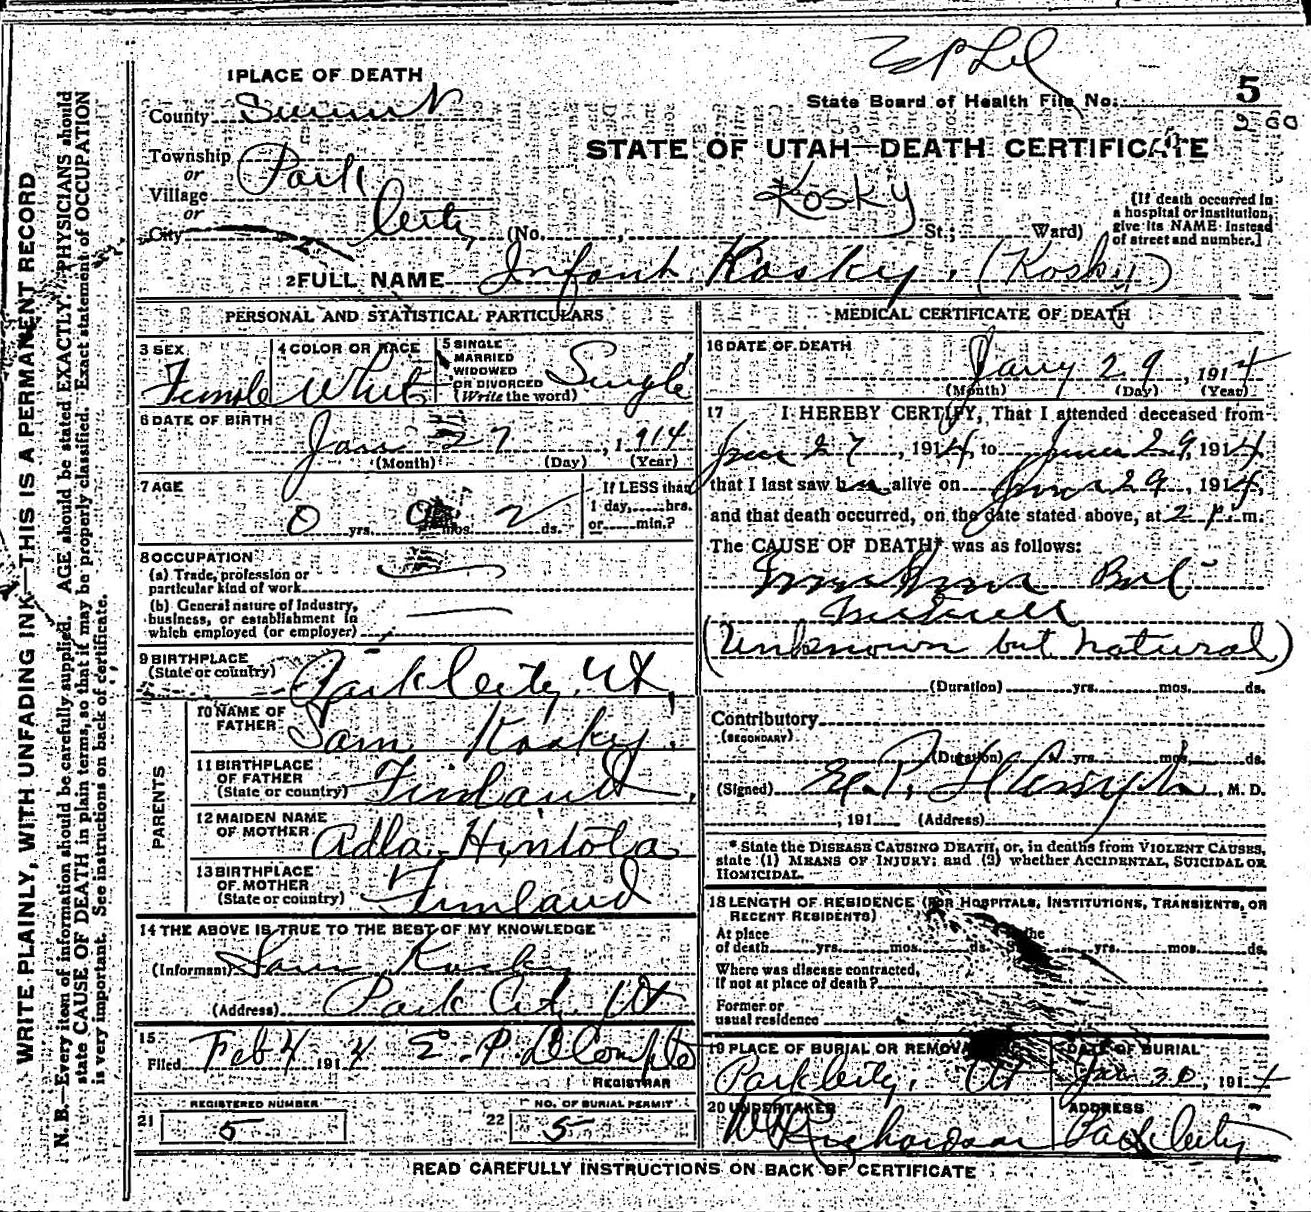 State Board of Health File No. 5
STATE OF UTAH—DEATH CERTIFICATE
1 PLACE OF DEATH
County Summit
Township
or
Village
or
City
Park
City
(No. , St.; Ward)
Kosky
[If death occurred in
a hospital or institution,
give its NAME instead
of street and number.]
2 FULL NAME Infant Kosky. (Kosky)
PERSONAL AND STATISTICAL PARTICULARS
3 SEX
Female
4 COLOR OR RACE
White
5 SINGLE
MARRIED
WIDOWED
OR DIVORCED
(Write the word)
Single
6 DATE OF BIRTH
Jan 27, 1914
(Month) (Day) (Year)
7 AGE
0 yrs. 0 mos. 2 ds.
If LESS than
1 day, hrs.
or min.?
8 OCCUPATION
(a) Trade, profession or
particular kind of work
(b) General nature of Industry,
business, or establishment in
which employed (or employer)
9 BIRTHPLACE
(State or country)
Park City, Ut,
PARENTS
10 NAME OF
FATHER
Sam Kosky.
11 BIRTHPLACE
OF FATHER
(State or country)
Finland.
12 MAIDEN NAME
OF MOTHER
Adla Hintola
13 BIRTHPLACE
OF MOTHER
(State or country)
Finland
14 THE ABOVE IS TRUE TO THE BEST OF MY KNOWLEDGE
(Informant) Sam Kosky
(Address) Park City Ut
15
Filed Feb 4 1914 E. P. LeCompte
REGISTRAR
21 REGISTERED NUMBER
5
22 NO. OF BURIAL PERMIT
5
MEDICAL CERTIFICATE OF DEATH
16 DATE OF DEATH
Jany 29, 1914
(Month) (Day) (Year)
17 I HEREBY CERTIFY, That I attended deceased from
27, 1914, to 29, 1914
that I last saw alive on 29, 1914,
and that death occurred, on the date stated above, at 2 P. m.
The CAUSE OF DEATH* was as follows:
(Unknown but natural)
(Duration) yrs. mos. ds.
Contributory
(SECONDARY)
(Duration) yrs. mos. ds.
(Signed) , M. D.
, 191 (Address)
* State the DISEASE CAUSING DEATH, or, in deaths from VIOLENT CAUSES,
state (1) MEANS OF INJURY; and (2) whether ACCIDENTAL, SUICIDAL OR
HOMICIDAL.
18 LENGTH OF RESIDENCE (FOR HOSPITALS, INSTITUTIONS, TRANSIENTS, OR
RECENT RESIDENTS)
At place
of death yrs. mos. ds. the yrs. mos. ds.
Where was disease contracted,
If not at place of death?
Former or
usual residence
19 PLACE OF BURIAL OR REMOVAL
Park City, Ut
DATE OF BURIAL
Jan 30, 1914
20 UNDERTAKER
Richardson
ADDRESS
Park City
READ CAREFULLY INSTRUCTIONS ON BACK OF CERTIFICATE
WRITE PLAINLY, WITH UNFADING INK—THIS IS A PERMANENT RECORD
N. B.—Every item of information should be carefully supplied. AGE should be stated EXACTLY. PHYSICIANS should
state CAUSE OF DEATH in plain terms, so that it may be properly classified. Exact statement of OCCUPATION
is very important. See instructions on back of certificate.